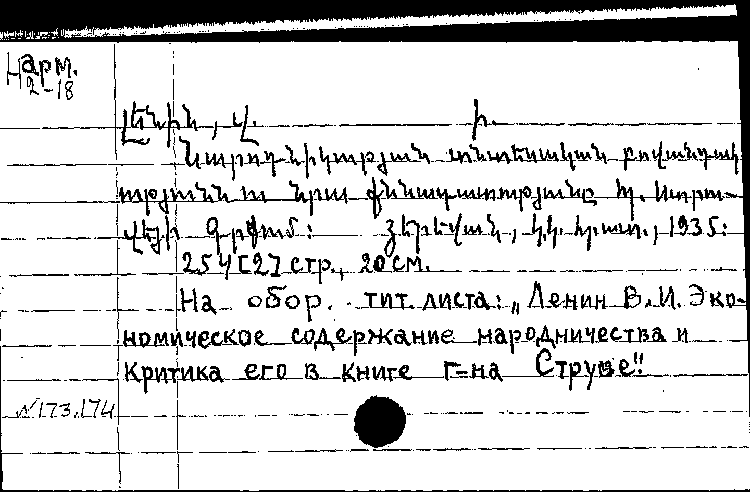 Н арм.
2-18
Լենին, Վ. Ի.
Նարոդնիկության տնտեսական բովանդակ
ությունն ու նրա քննադատությունը պ. Ստրու-
վեյի գրքում: Յերեվան, կ.կ. հրատ., 1935:
254 [2] стр., 20 см.
На обор. тит. листа: „Ленин В. И. Эко-
номическое содержание народничества и
критика его в книге г=на Струве".
№173,174